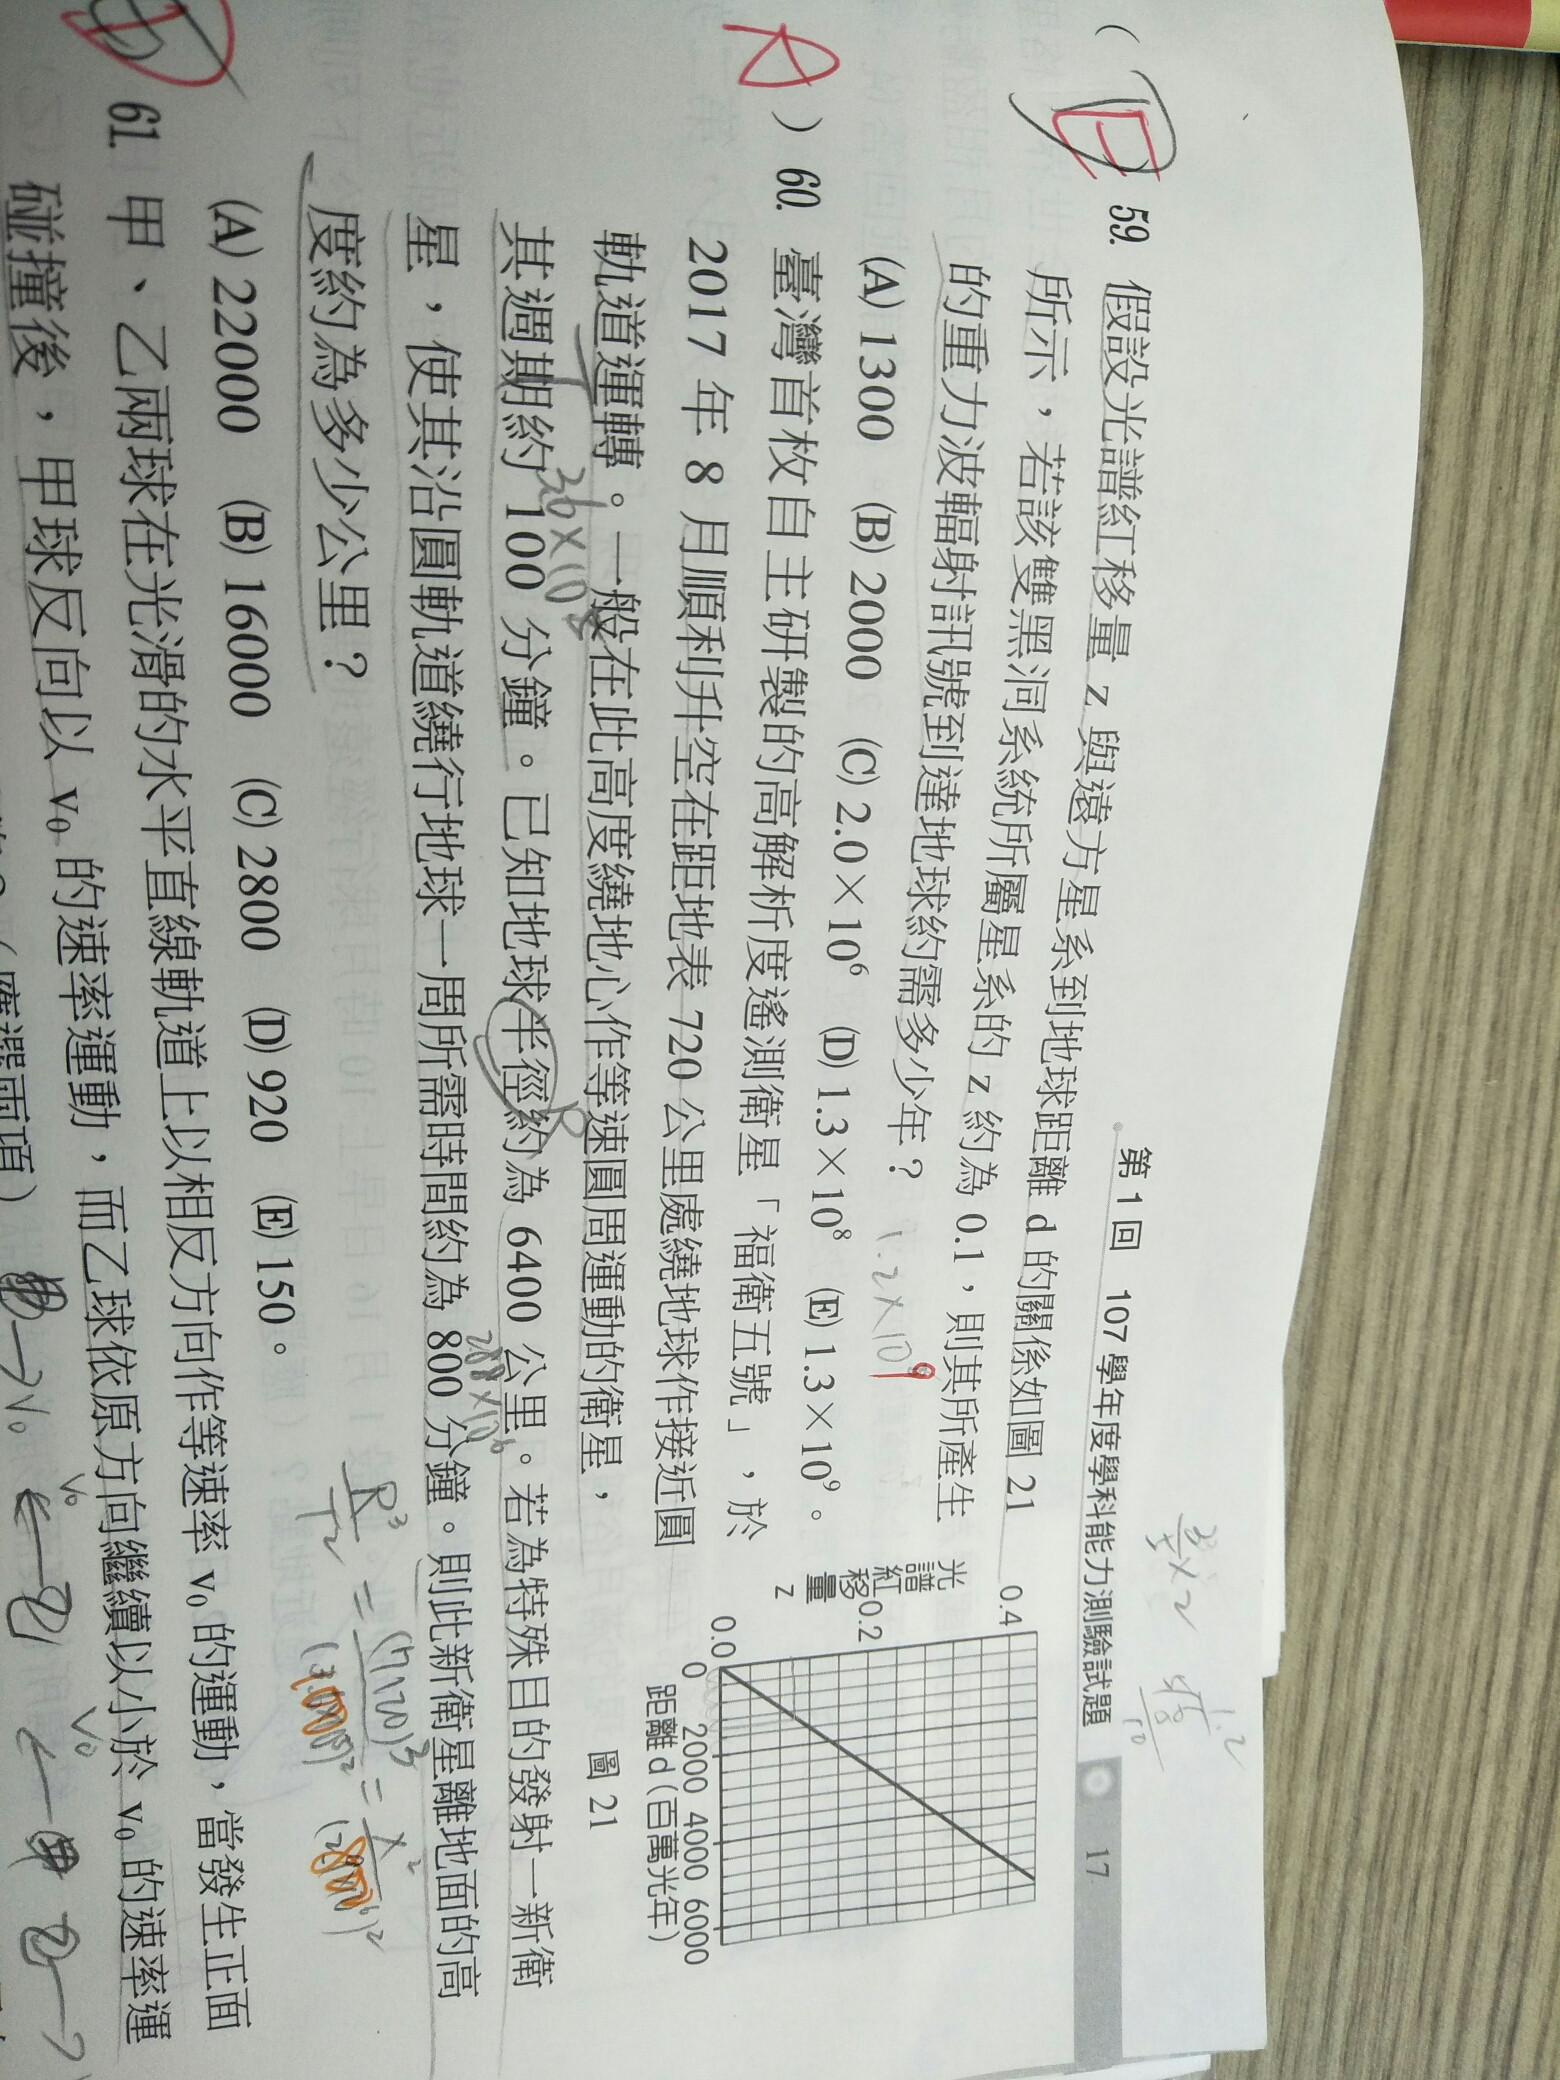 第 1 回 107 學年度學科能力測驗試題 17
E
59. 假設光譜紅移量 z 與遠方星系到地球距離 d 的關係如圖 21
所示，若該雙黑洞系統所屬星系的 z 約為 0.1，則其所產生
的重力波輻射訊號到達地球約需多少年？
(A) 1300 (B) 2000 (C) 2.0×10⁶ (D) 1.3×10⁸ (E) 1.3×10⁹。
1.2×10⁹
光譜紅移量 z
0.4
0.2
0.0
0 2000 4000 6000
距離 d (百萬光年)
圖 21
A
) 60. 臺灣首枚自主研製的高解析度遙測衛星「福衛五號」，於
2017 年 8 月順利升空在距地表 720 公里處繞地球作接近圓
軌道運轉。一般在此高度繞地心作等速圓周運動的衛星，
其週期約 100 分鐘。已知地球半徑約為 6400 公里。若為特殊目的發射一新衛
星，使其沿圓軌道繞行地球一周所需時間約為 800 分鐘。則此新衛星離地面的高
度約為多少公里？
(A) 22000 (B) 16000 (C) 2800 (D) 920 (E) 150。
T
R
R³/T² = (7120)³
61. 甲、乙兩球在光滑的水平直線軌道上以相反方向作等速率 v₀ 的運動，當發生正面
碰撞後，甲球反向以 v₀ 的速率運動，而乙球依原方向繼續以小於 v₀ 的速率運
v₀
v₀
v₀
乙